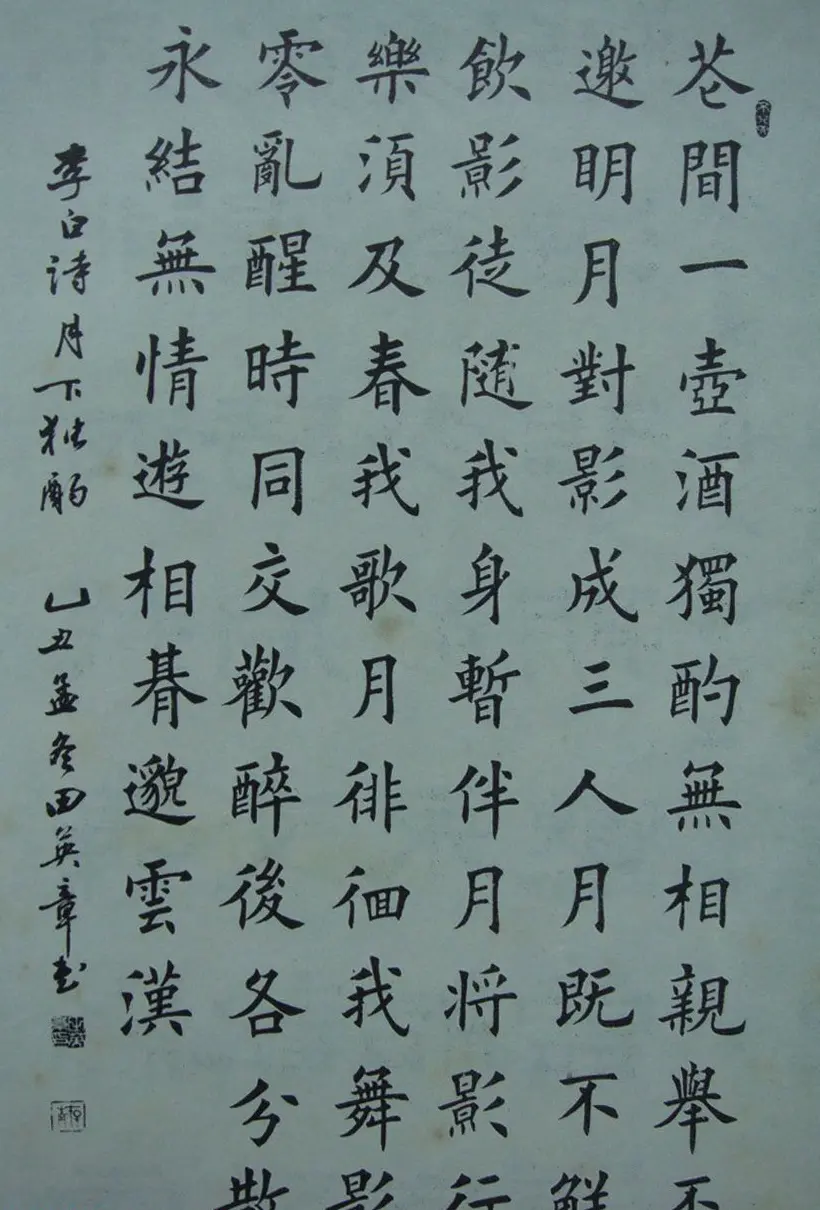 花間一壺酒獨酌無相親舉盃
邀明月對影成三人月既不觧
飲影徒随我身暫伴月将影行
樂須及春我歌月徘徊我舞影
零亂醒時同交歡醉後各分散
永結無情遊相朞邈雲漢
李白诗月下独酌 乙丑孟冬田英章书